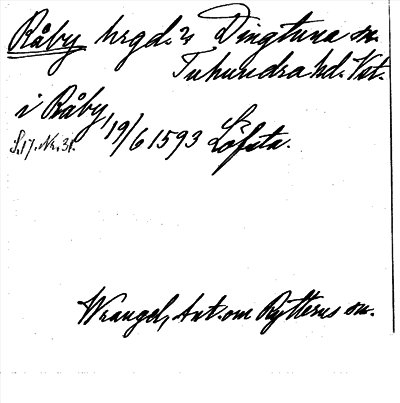 Råby hrgd. 2 Dingtuna sn.
Tuhundra hd. Vst.
i Råby, 19/6 1593 Löfsta.
S. 17. Nr. 31.
Wrangel, Ant. om Rytterns sn.